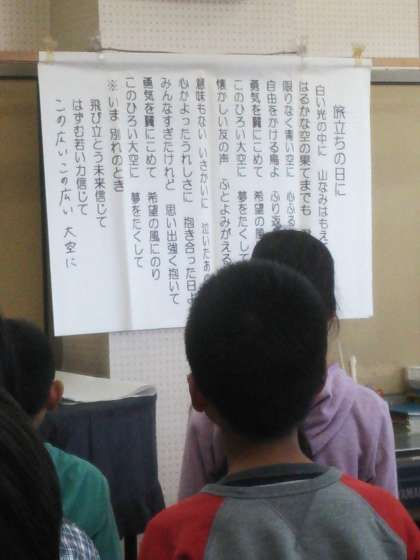 旅立ちの日に
白い光の中に 山なみはもえ
はるかな空の果てまでも
限りなく青い空に 心ふる
自由をかける鳥よ ふり返
勇気を翼にこめて 希望の風
このひろい大空に 夢をたくして
懐かしい友の声 ふとよみがえる
意味もない いさかいに 泣いたあの
心かよったうれしさに 抱き合った日よ
みんなすぎたけれど 思い出強く抱いて
勇気を翼にこめて 希望の風にのり
このひろい大空に 夢をたくして
※いま 別れのとき
飛び立とう未来信じて
はずむ若い力信じて
この広い この広い 大空に
YAMAHA